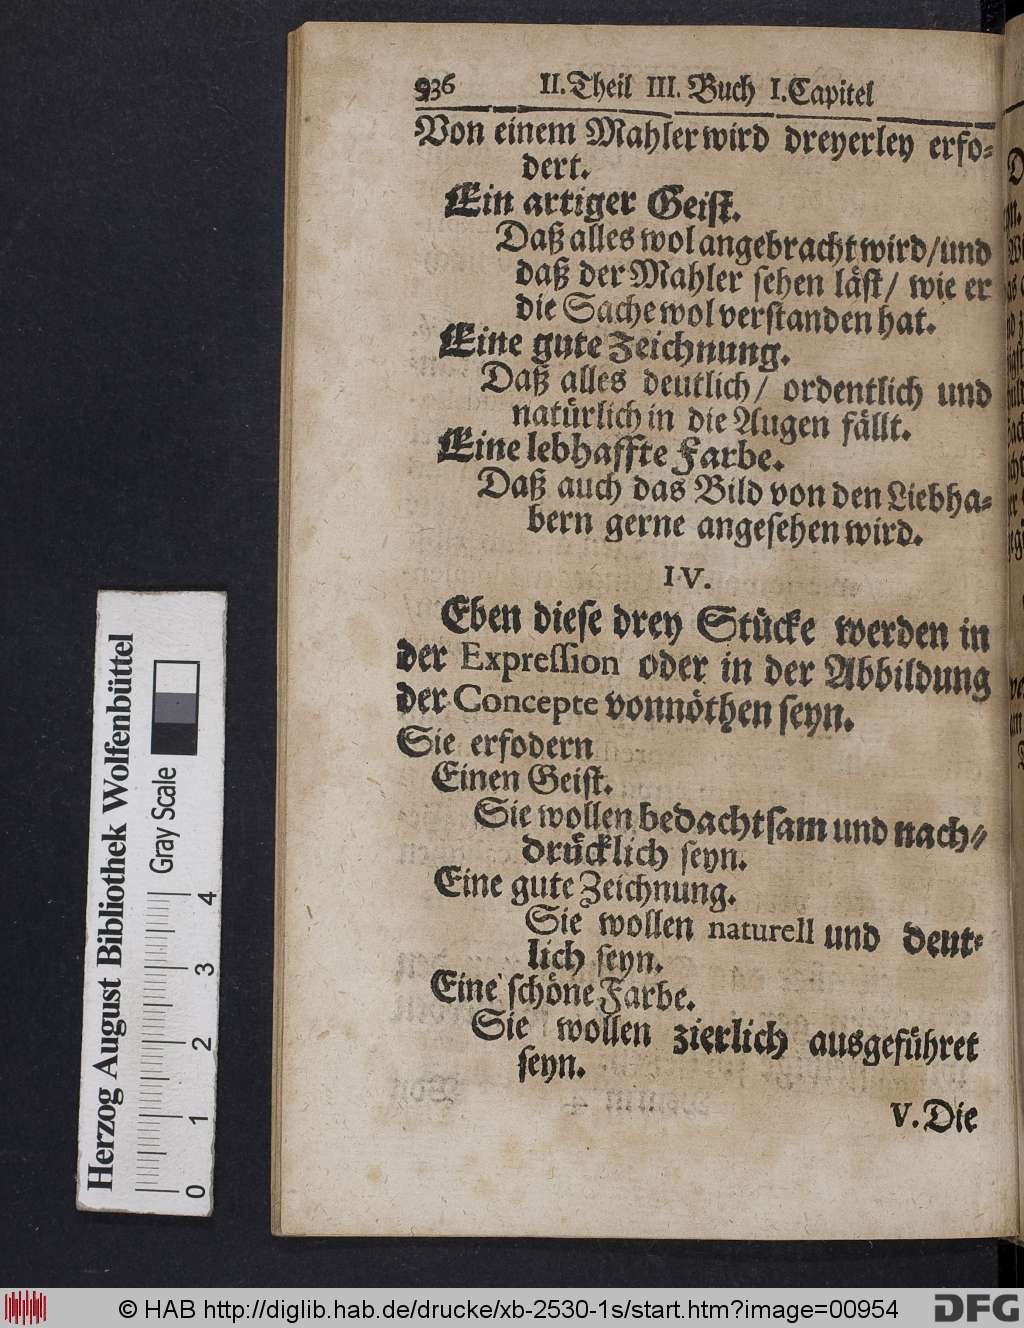 936 II. Theil III. Buch I. Capitel
Von einem Mahler wird dreyerley erfo-
dert.
Ein artiger Geist.
Daß alles wol angebracht wird/und
daß der Mahler sehen läst/ wie er
die Sache wol verstanden hat.
Eine gute Zeichnung.
Daß alles deutlich/ ordentlich und
natürlich in die Augen fällt.
Eine lebhaffte Farbe.
Daß auch das Bild von den Liebha-
bern gerne angesehen wird.
IV.
Eben diese drey Stücke werden in
der Expression oder in der Abbildung
der Concepte vonnöthen seyn.
Sie erfodern
Einen Geist.
Sie wollen bedachtsam und nach-
drücklich seyn.
Eine gute Zeichnung.
Sie wollen naturell und deut-
lich seyn.
Eine schöne Farbe.
Sie wollen zierlich ausgeführet
seyn.
V. Die
Herzog August Bibliothek Wolfenbüttel
Gray Scale
0 1 2 3 4
© HAB http://diglib.hab.de/drucke/xb-2530-1s/start.htm?image=00954
DFG